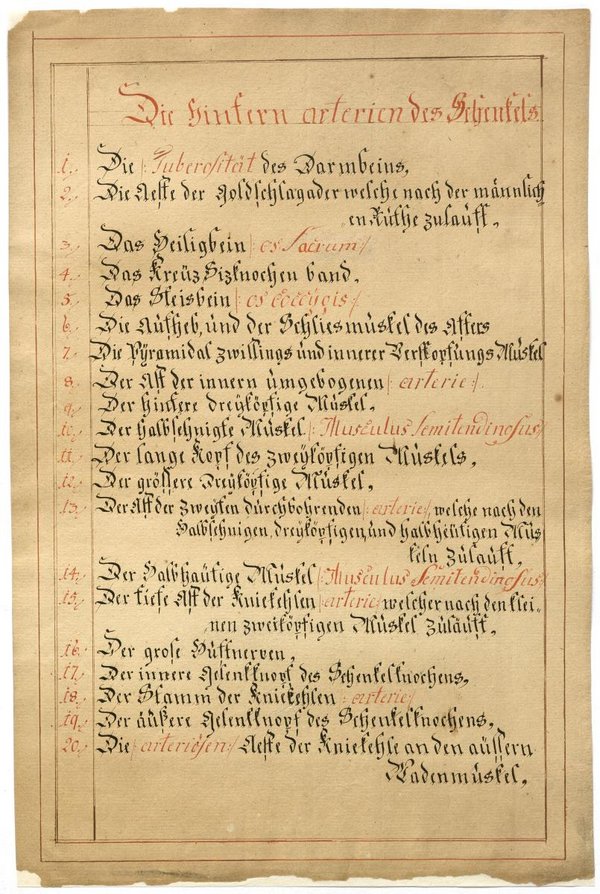 Die hintern arterien des Schenkels
1. Die /:Tuberosität des Darmbeins,
2. Die Aeste der Goldschlagader welche nach der männlich-
en Ruthe zulauft,
3. Das Heiligbein /:os Sacrum:/
4. Das Kreuz Sizknochen band,
5. Das Steisbein /:os coccÿgis:/
6. Die Aufheb, und der Schliesmuskel des Afters
7. Die Pÿramidal zwillings und innerer Verstopfungs Muskel
8. Der Ast der innern umgebogenen /:arterie:/.
9. Der hintere dreÿköpfige Muskel,
10. Der halbsehnigte Muskel /:Musculus Semitendinosus:/
11. Der lange Kopf des zweÿköpfigen Muskels,
12. Der grössere Dreÿköpfige Muskel,
13. Der Ast der zweÿten durchbohrenden /:arterie:/, welche nach den
Halbsehnigen, dreÿköpfigen, und halbhäutigen Mus-
keln zulauft,
14. Der Halbhäutige Muskel /:Musculus Semitendinosus:/
15. Der tiefe Ast der Kniekehlen /:arterie welcher nach den klei-
nen zweiköpfigen Muskel zuläuft,
16. Der grose Hüftnerven,
17. Der innere Gelenkknopf des Schenkelknochens,
18. Der Stamm der Kniekehlen /:arterie:/
19. Der äußere Gelenkknopf des Schenkelknochens,
20. Die /:arteriösen:/ Aeste der Kniekehle an den äussern
Wadenmuskel,